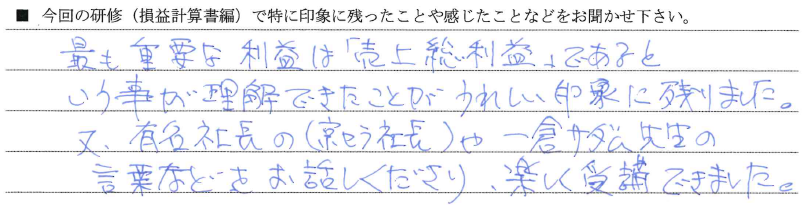 ■ 今回の研修（損益計算書編）で特に印象に残ったことや感じたことなどをお聞かせ下さい。
最も重要な利益は「売上総利益」であると
いう事が理解できたことがうれしい印象に残りました。
又、有名社長の（京セラ社長）や一倉サダム先生の
言葉などをお話しくださり、楽しく受講できました。